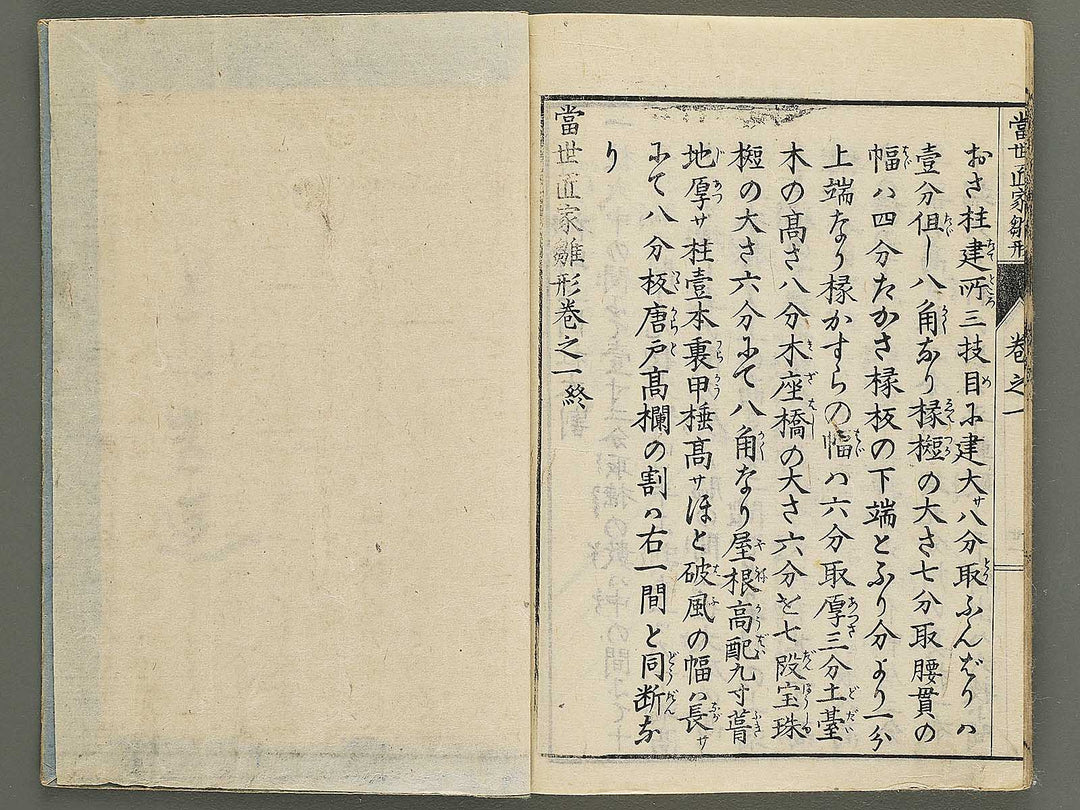 當世匠家雛形 卷之一
おさ柱建所三技目に建大サ八分取ふんばりハ
壹分但し八角なり椽榳の大さ七分取腰貫の
幅ハ四分たかさ椽板の下端とふり分より一分
上端なり椽かずらの幅ハ六分取厚三分土臺
木の髙さ八分木座橋の大さ六分を七段宝珠
榳の大さ六分にて八角なり屋根高配九寸葺
地厚サ柱壹本裏甲棰髙サほと破風の幅ハ長サ
にて八分板唐戸髙欄の割ハ右一間と同断な
り
當世匠家雛形卷之一終